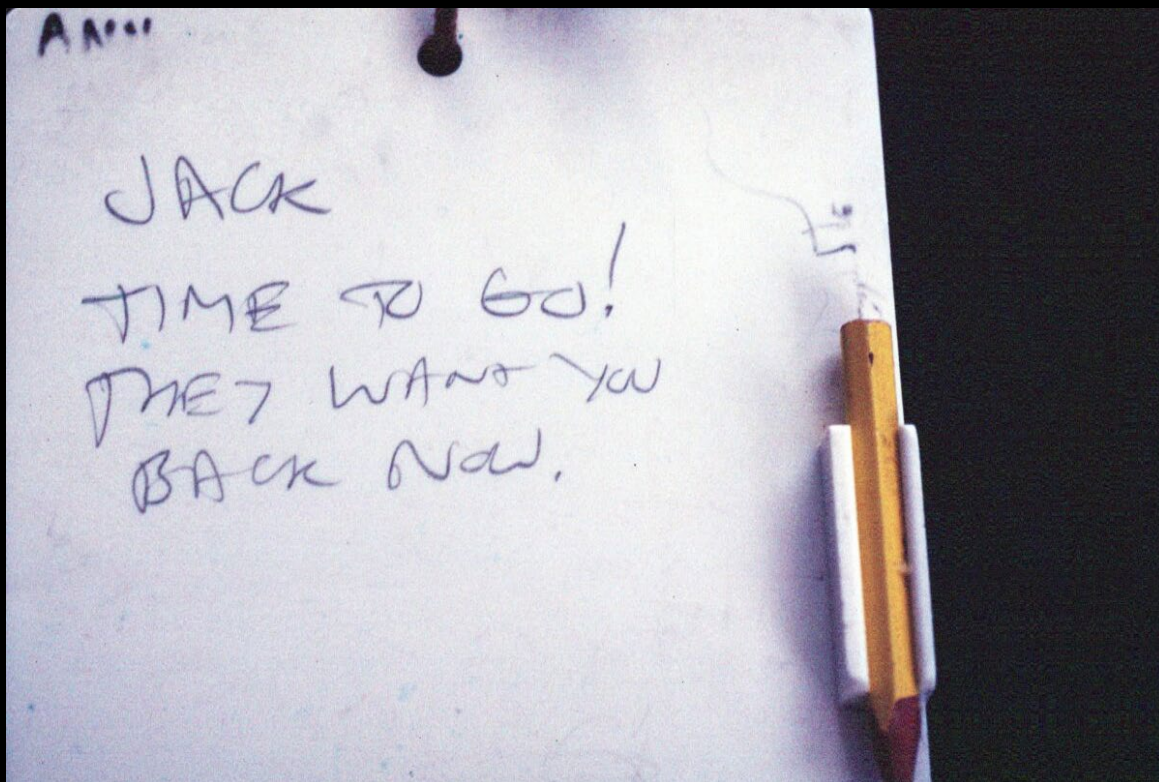 JACK
TIME TO GO!
THEY WANT YOU
BACK NOW.